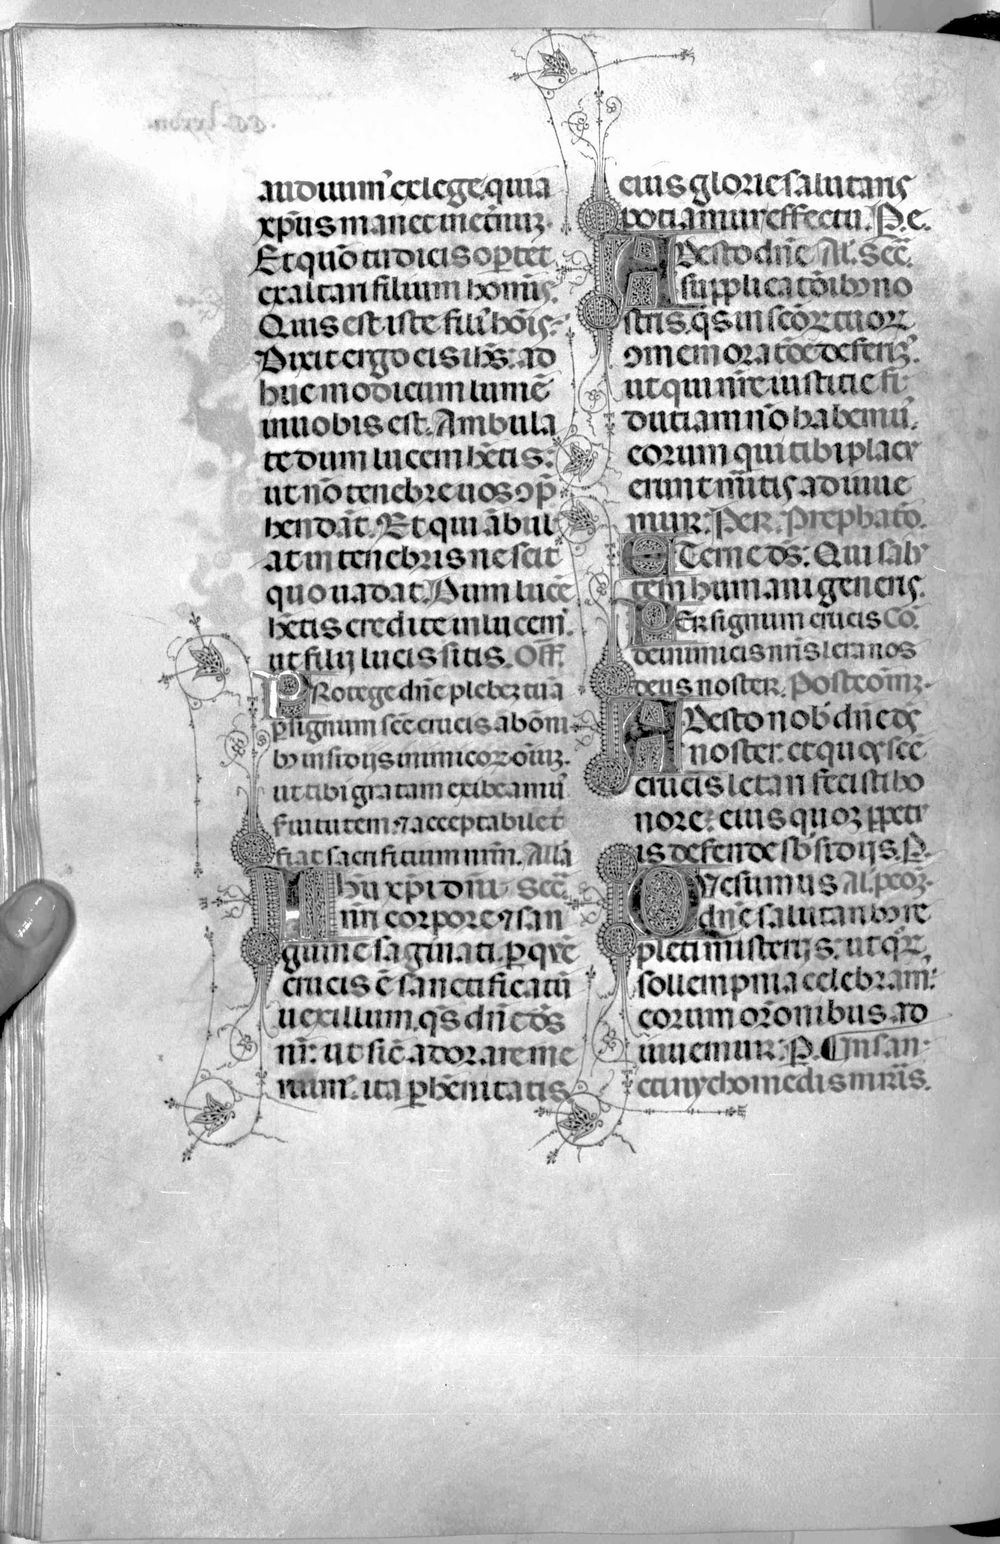 audiuim᷒ ex lege. quia
xp̄us manet in et̄nuz.
Et quō tu dicis oportet
exaltari filium hominis.
Quis est iste fili᷒ hōis.
Dixit ergo eis ih̄s: ad
huc modicum lumē
in uobis est. Ambula
te dum lucem hētis:
ut nō tenebre uos ↄp̄
hendāt. Et qui ābul
at in tenebris nescit
quo uadat. Dum lucē
hētis credite in lucem.
ut filij lucis sitis. Off.
Rotege dn̄e plebez tuā
p signum scē crucis ab om̄i
bꝫ insidijs inimicoꝝ oīuz.
ut tibi gratam exibeamus
seruitutem: ⁊ acceptabile
fiat sacrificium nrm̄. Alla
Ihu xp̄i dn̄i. Secr̄.
nr̄i corpore ⁊ san
guine saginati. p quē
crucis ē sanctificatū
uexillum. qs̄ dn̄e ds̄
nr̄: ut sic̄ adorare me
ruim᷒. ita phēnitatis
eius glorie salutaris
potiamur effectu. P. e.
Desto dn̄e Al. Secr̄.
supplicatōibꝫ no
stris. qs̄ in scōꝝ tuoꝝ
ↄmemoratōe deferim᷒.
ut qui nr̄e iustitie fi
dutiam nō habemus.
eorum qui tibi place
runt mr̄itis adiuue
mur: Per. Prephatō.
Terne ds̄: Qui salu
tem humani generis.
Er signum crucis Cō.
de inimicis nr̄is lera nos
deus noster. Postcōm.
Desto nob̄ dn̄e ds̄
noster. et quos sc̄e
crucis letari fecisti ho
nore: eius quoꝫ ppetu
is defende sb̄sidijs. P.
Vesumus Al. pcoꝝ.
dn̄e salutaribꝫ re
pleti misterijs: ut quoꝝ
sollempnia celebram᷒:
eorum orōnibus ad
iuuemur: P. In san
cti nychomedis mr̄is.